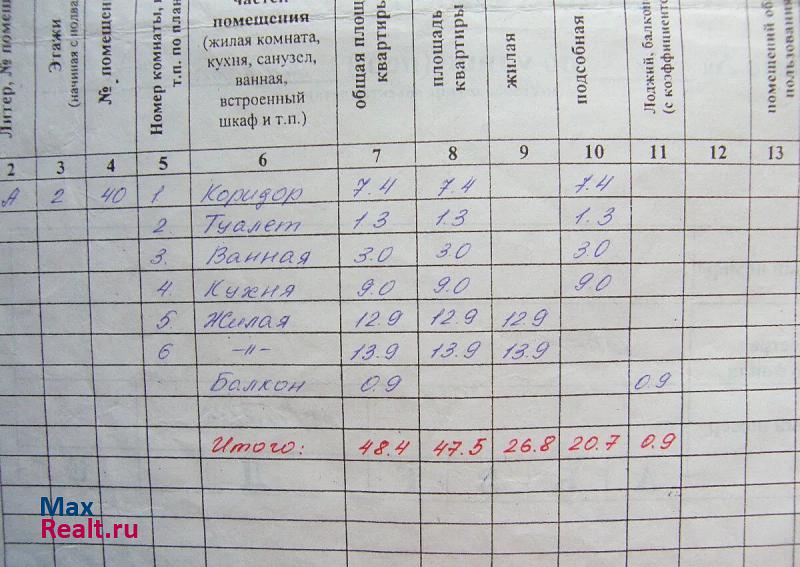 Литер, № помещ
Этажи
(начиная с подва
№ помещен
Номер комнаты,
т.п. по план
частей
помещения
(жилая комната,
кухня, санузел,
ванная,
встроенный
шкаф и т.п.)
общая площ
квартиры
площадь
квартиры
жилая
подсобная
Лоджий, балкон
(с коэффициенто
помещений об
пользования
2 3 4 5 6 7 8 9 10 11 12 13
А 2 40 1 Коридор 7.4 7.4 7.4
2. Туалет 1.3 1.3 1.3
3. Ванная 3.0 3.0 3.0
4. Кухня 9.0 9.0 9.0
5. Жилая 12.9 12.9 12.9
6 -"- 13.9 13.9 13.9
Балкон 0.9 0.9
Итого: 48.4 47.5 26.8 20.7 0.9
Max
Realt.ru